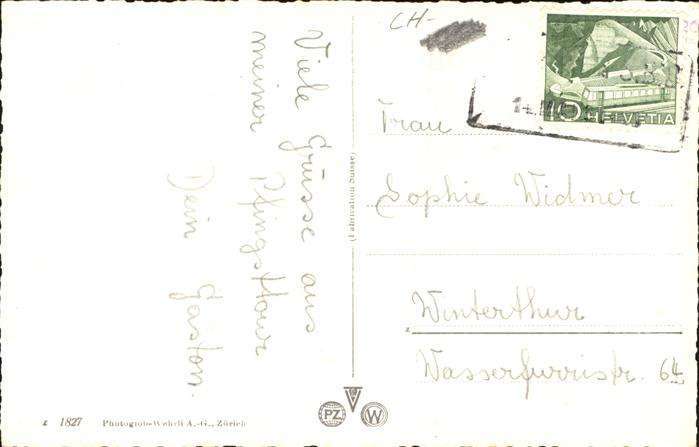 CH-
10 HELVETIA
Viele Grüsse aus
meiner Pfingsttour
Dein Gaston.
Frau
Sophie Widmer
Winterthur
Wasserfurristr. 64
(Fabrication Suisse)
1827 Photoglob-Wehrli A.-G., Zürich
PZ W